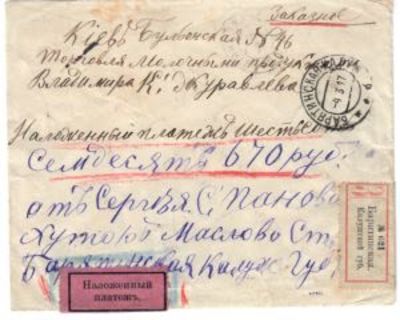 Заказное
Кіевъ Бульонская № 96
Торговля Молочными продук
Владимира К. Журавлева
Наложенный платежъ Шестьсо
Семдесятъ 670 руб.
отъ Сергея С, Панова
Хуторъ Маслово Ст.
Барятинская Калуж. Губ.
БАРЯТИНСКАЯ
№ 621
Барятинская.
Калужской губ.
Наложенный
платежъ.